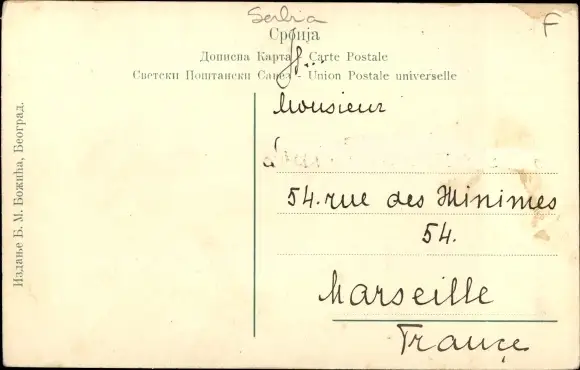 Serbia
F
Србија
Дописна Карта Carte Postale
Светски Поштански Савез - Union Postale universelle
Monsieur
54. rue des Minimes
54.
Marseille
France
Издање Б. М. Божића, Београд.